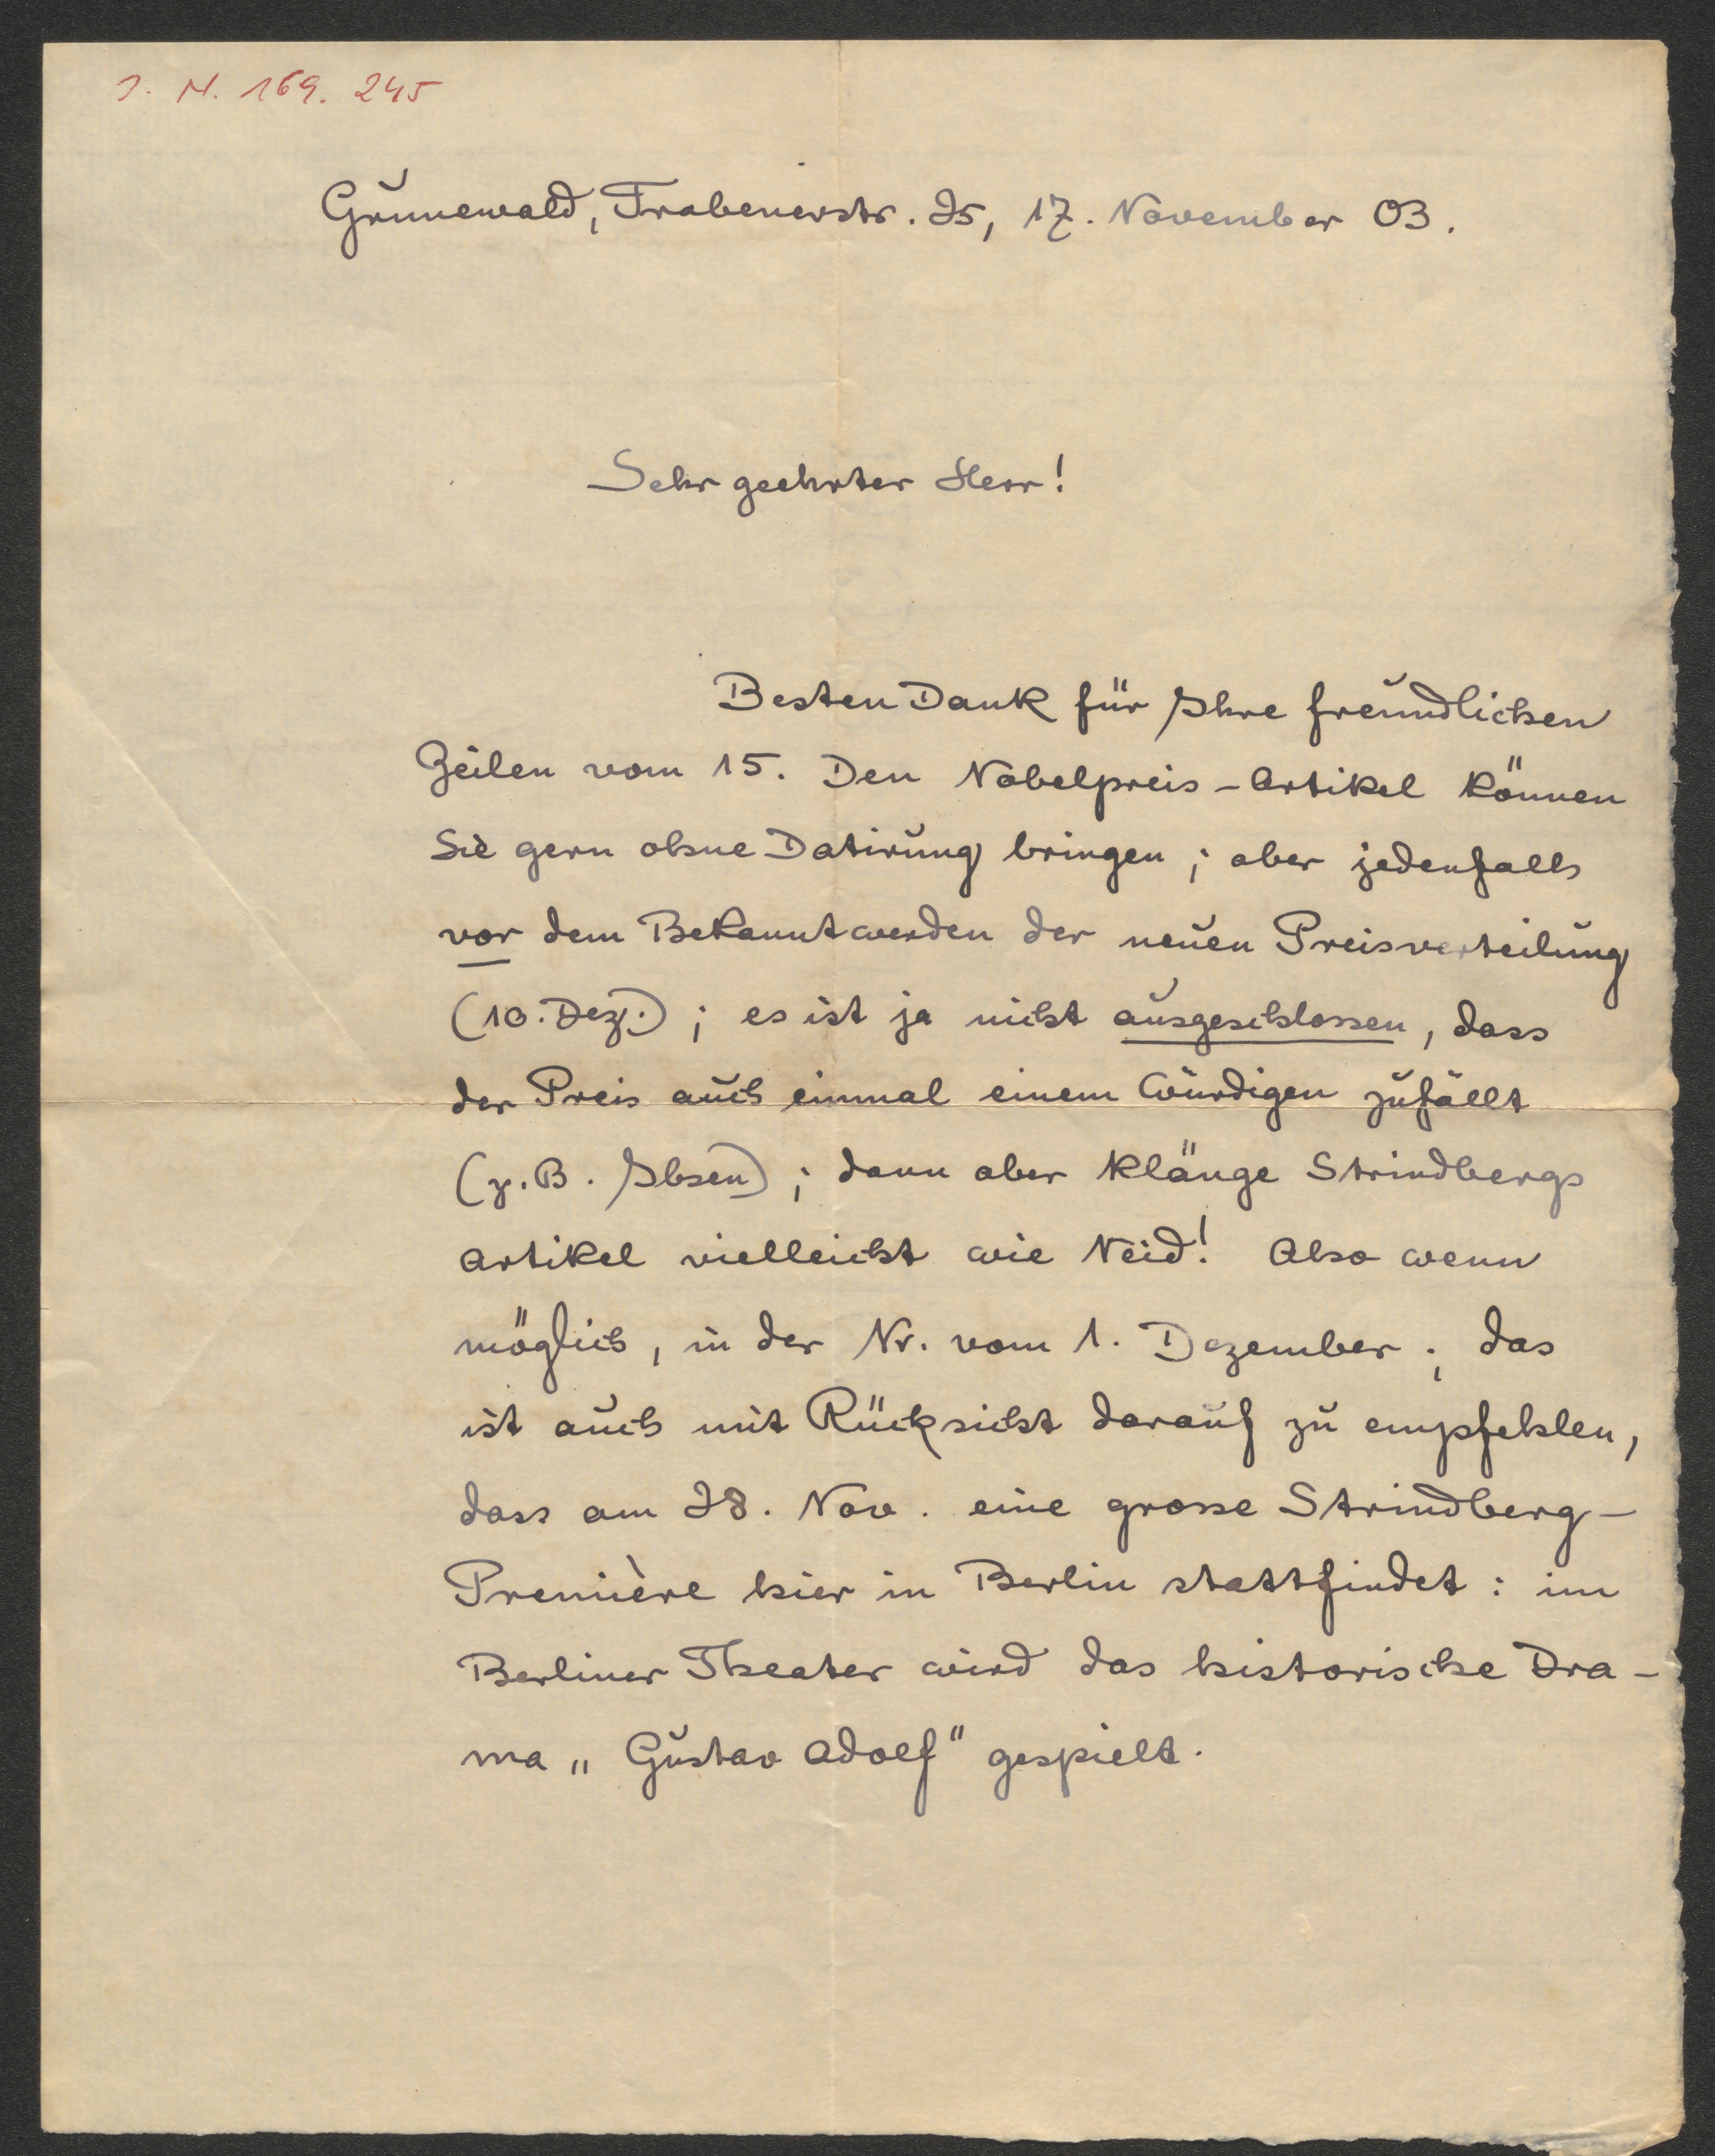 J. N. 169.245
Grunewald, Trabenerstr. 25, 17. November 03.
Sehr geehrter Herr!
Besten Dank für Ihre freundlichen
Zeilen vom 15. Den Nobelpreis-Artikel können
Sie gern ohne Datirung bringen; aber jedenfalls
vor dem Bekanntwerden der neuen Preisverteilung
(10. Dez.); es ist ja nicht ausgeschlossen, dass
der Preis auch einmal einem Würdigen zufällt
(z. B. Ibsen); dann aber klänge Strindbergs
Artikel vielleicht wie Neid! Also wenn
möglich, in der Nr. vom 1. Dezember; das
ist auch mit Rücksicht darauf zu empfehlen,
dass am 28. Nov. eine grosse Strindberg-
Première hier in Berlin stattfindet: im
Berliner Theater wird das historische Dra-
ma „Gustav Adolf" gespielt.